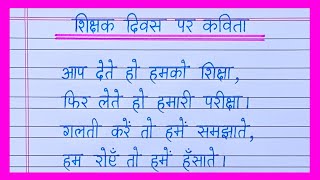 शिक्षक दिवस पर कविता
आप देते हो हमको शिक्षा,
फिर लेते हो हमारी परीक्षा।
गलती करें तो हमें समझाते,
हम रोएँ तो हमें हँसाते।